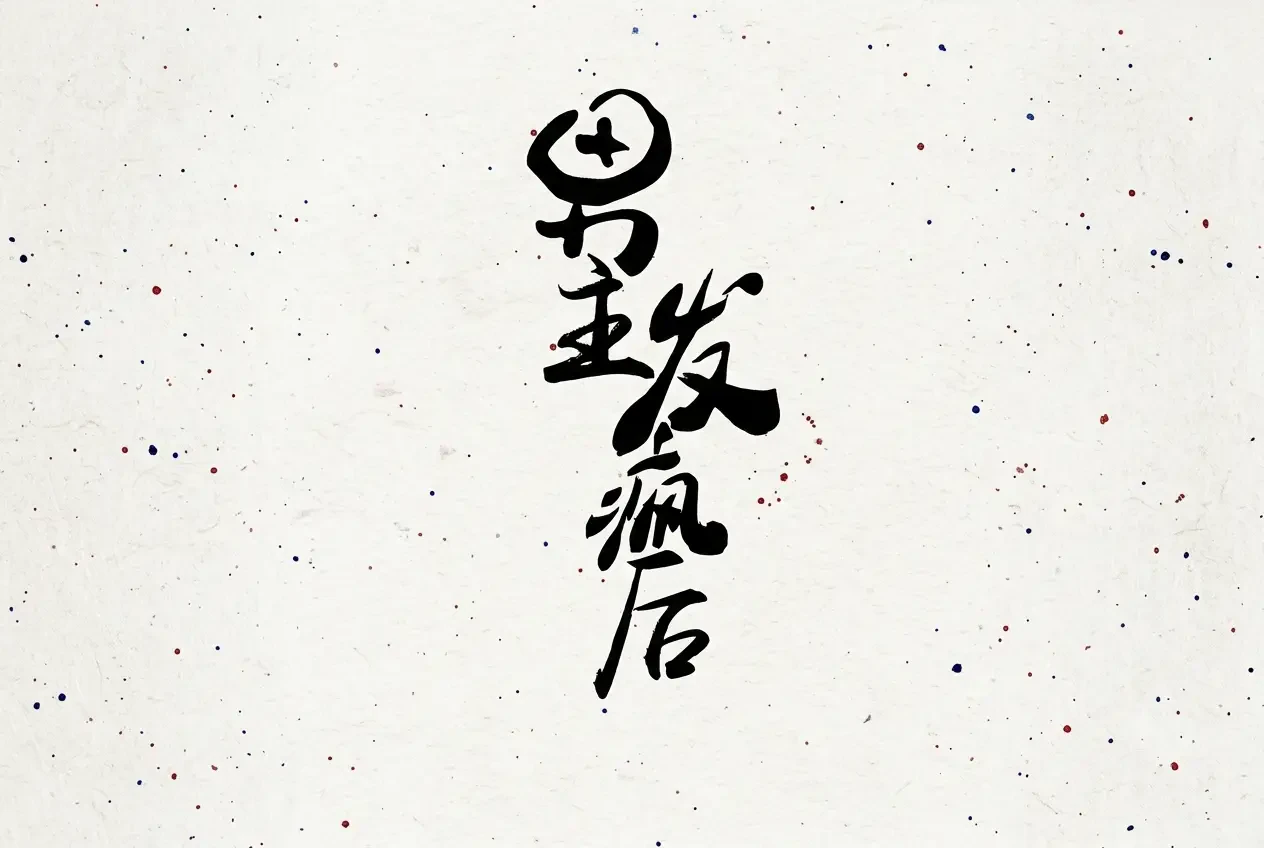 男主发疯后